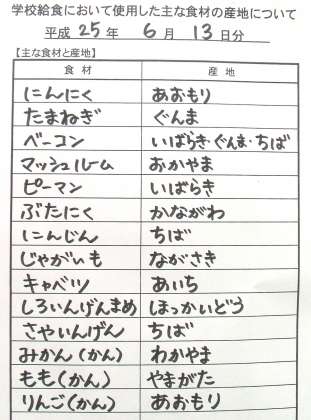 学校給食において使用した主な食材の産地について
平成 25 年 6 月 13 日分
【主な食材と産地】
食材 産地
にんにく あおもり
たまねぎ ぐんま
ベーコン いばらき・ぐんま・ちば
マッシュルーム おかやま
ピーマン いばらき
ぶたにく かながわ
にんじん ちば
じゃがいも ながさき
キャベツ あいち
しろいんげんまめ ほっかいどう
さやいんげん ちば
みかん(かん) わかやま
もも(かん) やまがた
りんご(かん) あおもり